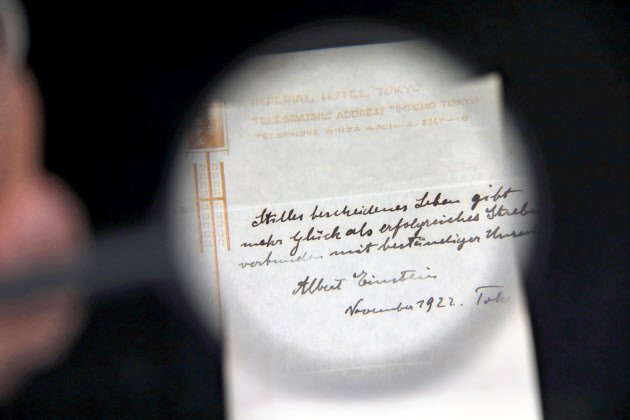 IMPERIAL HOTEL TOKYO
TELEGRAPHIC ADDRESS "IMPEHO TOKYO
TELEPHONE GINZA
Stilles bescheidenes Leben gibt
mehr Glück als erfolgreiches Strebe
verbunden mit beständiger Unru
Albert Einstein
November 1922. Tok